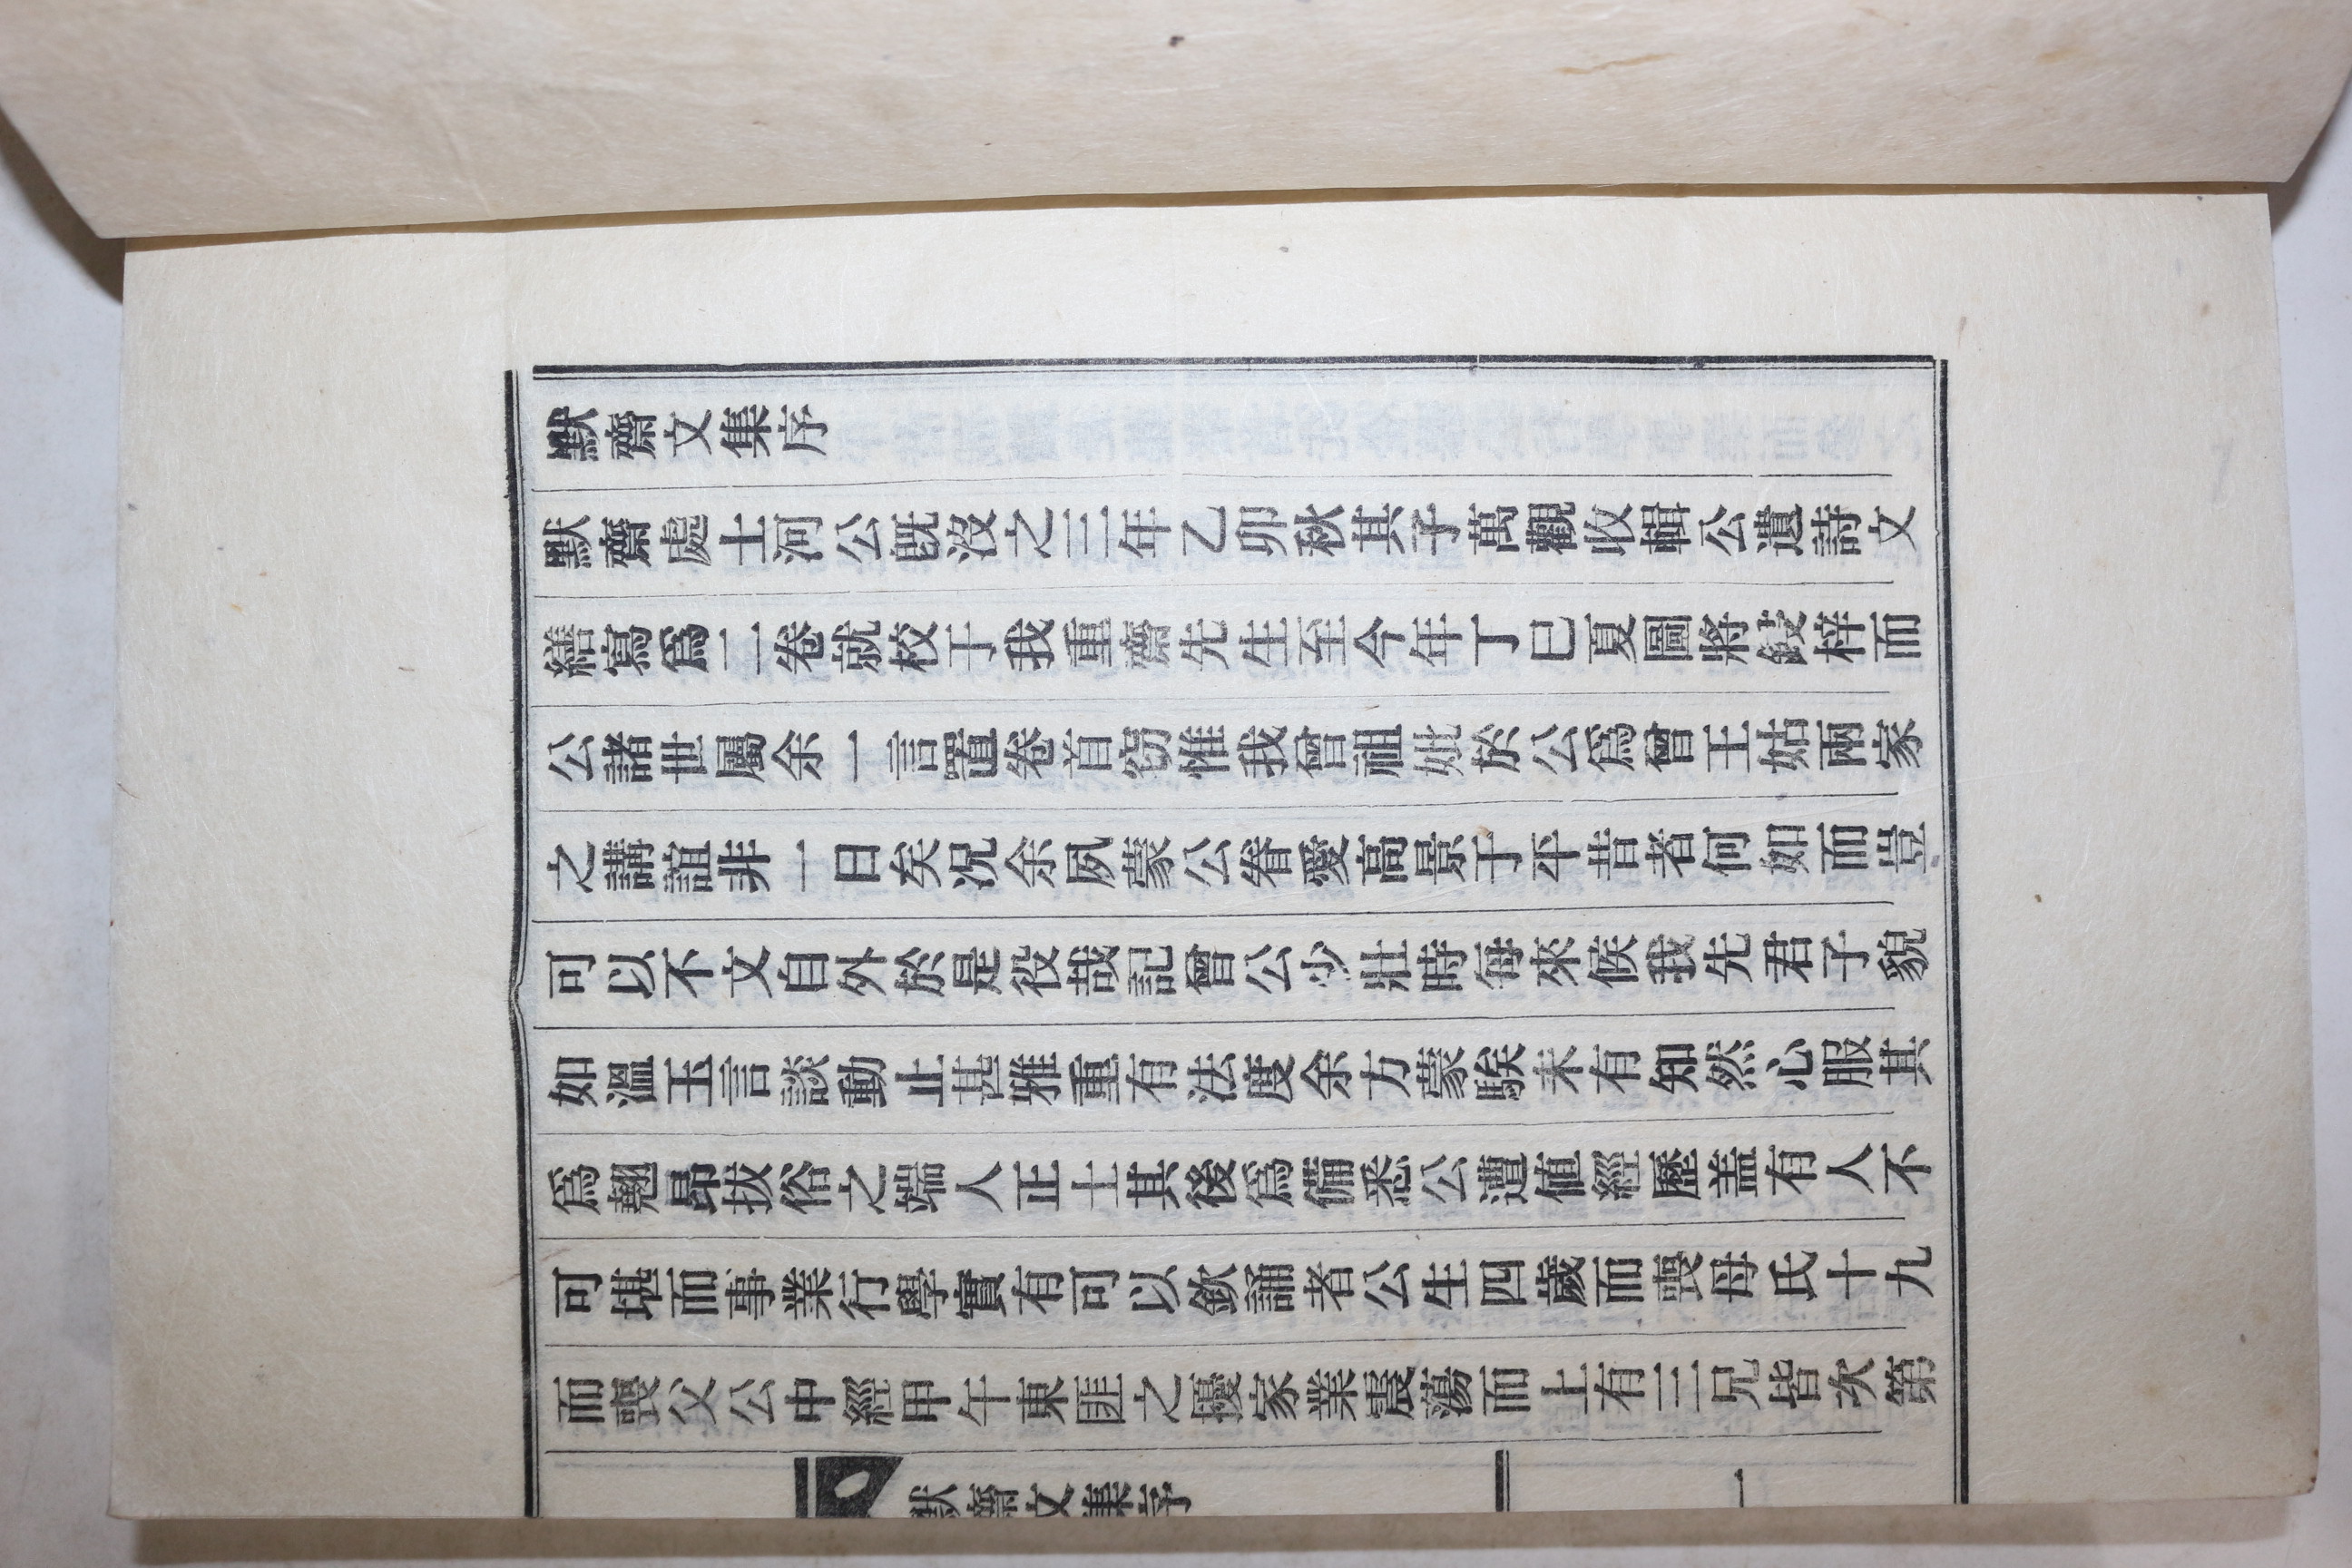 默齋文集序
默齋處士河公旣沒之三年乙卯秋其子萬觀收輯公遺詩文
繕寫爲二卷就校于我重齋先生至今年丁巳夏圖將鋟梓而
公諸世屬余一言置卷首窃惟我曾祖妣於公爲曾王姑兩家
之講誼非一日矣况余夙蒙公眷愛高景于平昔者何如而豈
可以不文自外於是役哉記曾公少壯時每來候我先君子貌
如溫玉言談動止甚雅重有法度余方蒙騃未有知然心服其
爲翹昂拔俗之端人正士其後爲備悉公遭値經歷盖有人不
可堪而事業行學實有可以欽誦者公生四歲而喪母氏十九
而喪父公中經甲午東匪之擾家業震蕩而上有三兄皆次第
默齋文集序
一